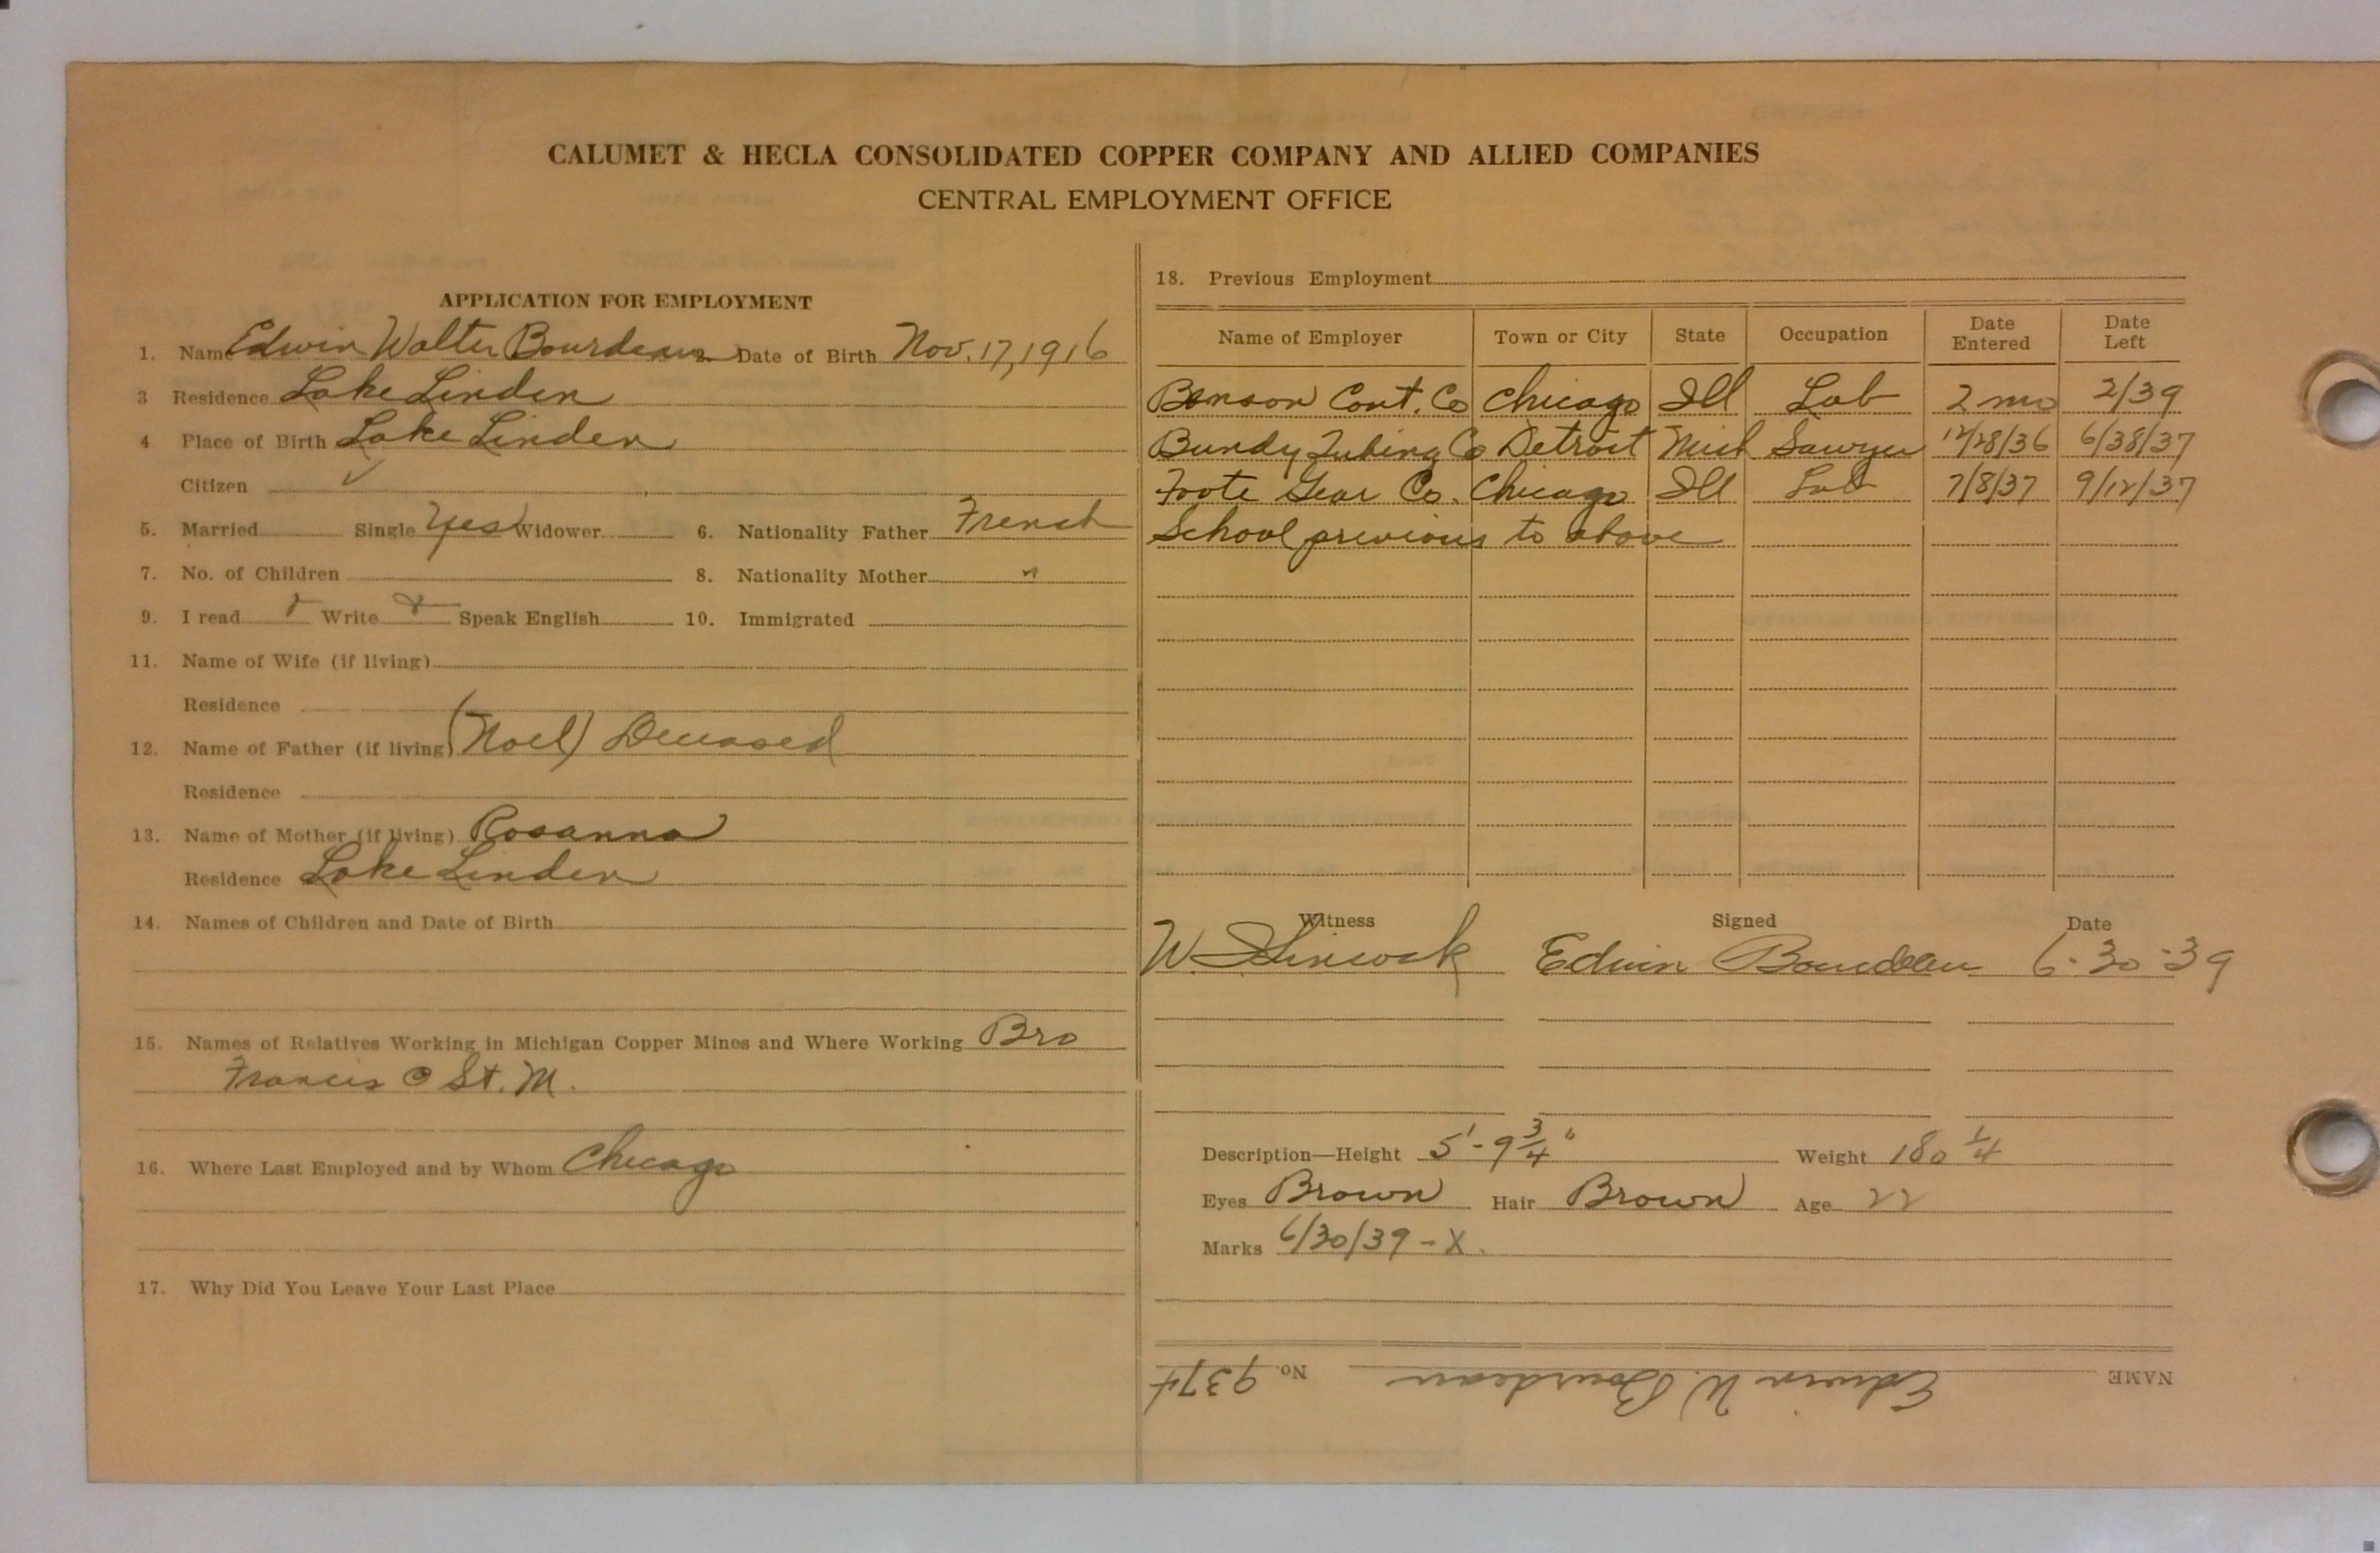 CALUMET & HECLA CONSOLIDATED COPPER COMPANY AND ALLIED COMPANIES
CENTRAL EMPLOYMENT OFFICE
APPLICATION FOR EMPLOYMENT
1. Name Edwin Walter Bourdeau 2. Date of Birth Nov. 17, 1916
3 Residence Lake Linden
4 Place of Birth Lake Linden
Citizen ✓
5. Married Single Yes Widower 6. Nationality Father French
7. No. of Children 8. Nationality Mother "
9. I read Write Speak English 10. Immigrated
11. Name of Wife (if living)
Residence
12. Name of Father (if living) (Noel) Deceased
Residence
13. Name of Mother (if living) Rosanna
Residence Lake Linden
14. Names of Children and Date of Birth
15. Names of Relatives Working in Michigan Copper Mines and Where Working Bro
Francis @ St. M.
16. Where Last Employed and by Whom Chicago
17. Why Did You Leave Your Last Place
18. Previous Employment
Name of Employer Town or City State Occupation Date Entered Date Left
Benson Cont. Co Chicago Ill Lab 2 mo 2/39
Bundy Tubing Co Detroit Mich Sawyer 12/28/36 6/38/37
Foote Gear Co. Chicago Ill Lab 7/8/37 9/12/37
School previous to above
Witness Signed Date
W. Edwin Bourdeau 6-30-39
Description—Height 5'-9 3/4" Weight 180 1/4
Eyes Brown Hair Brown Age 22
Marks 6/30/39 - X.
NAME Edwin W. Bourdeau No. 937+